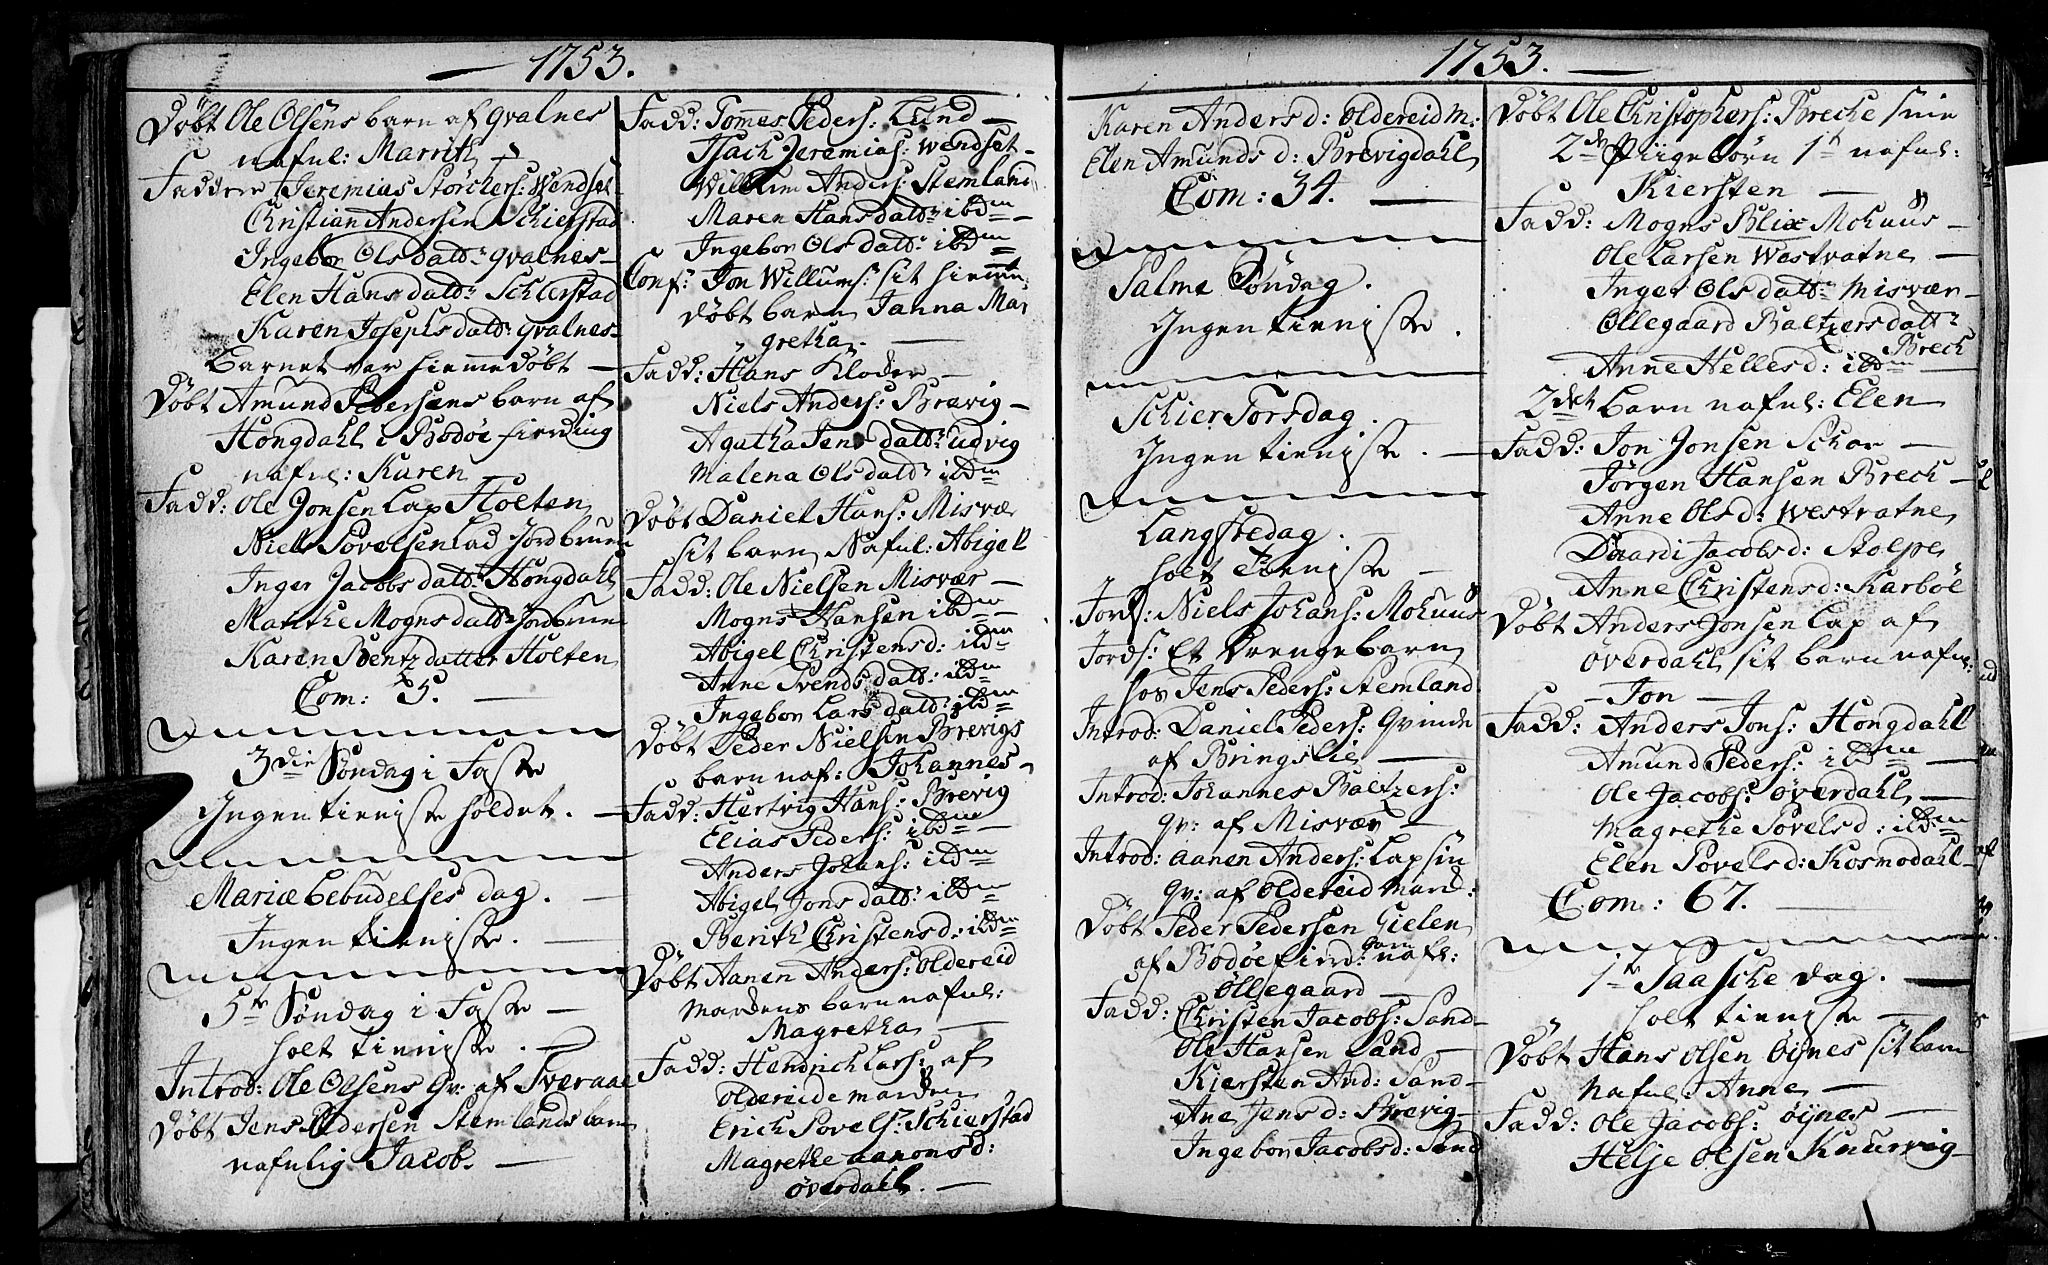 1753.
Døbt Ole Olsens barn af Qvalnes
nafnl: Marrith
Faddere Jeremias Störchers: Wendset
Christian Andersen Schierstad
Ingebor Olsdatr: Qvalnes
Elen Hansdatr: Schierstad
Karen Josephsdatr: Qvalnes
Barnet var hiemmedøbt
Døbt Amund Pedersens barn af
Hongdahl i Bodøe fierding
nafnl: Karen
Fadd: Ole Jonsen Lap Holten
Niels Povelsen Lad Jordbruen
Inger Jacobsdatr: Hongdahl
Marithe Mognsdatr: Jordbruen
Karen Bentzdatter Holten
Com: 5.
3die Søndag i Faste
Ingen tieniste holdet.
Mariæ bebudelses dag.
Ingen tieniste.
5te Søndag i Faste
holt tieniste.
Introd: Ole Olsens Qv: af Sveraae
Døbt Jens Pedersen Stemlands barn
nafnlig Jacob.
Fadd: Tommes Peders: Lund
Isach Jeremias: Wendset
Willum Anders: Stemland
Maren Hansdatr: ibdm
Ingebor Olsdatr: ibdm
Conf: Jon Willums: sit hiemme
døbt barn Janna Mar
gretha.
Fadd: Hans Klöder
Niels Anders: Brevig
Agatha Jensdatr: Ludvig
Malena Olsdatr: ibdm
Døbt Daniel Hans: Misvær
sit barn Nafnl: Abigell
Fadd: Ole Nielsen Misvær
Mogns Hansen ibdm
Abigel Christensd: ibdm
Anne Svendsdatr: ibdm
Ingebor Larsdatr: ibdm
Døbt Peder Nielsen Brevigs
barn naf: Johannes
Fadd: Hertvig Hans: Brevig
Elias Peders: ibdm
Anders Johans: ibdm
Abigel Jonsdatr: ibdm
Berith Christensd: ibdm
Døbt Aanen Anders: Oldereid
mardens barn nafnl:
Magretha
Fadd: Hendrich Lars: af
Oldereidemarden
Erich Povels: Schierstad
Magrethe Aanonsd:
Øverdahl.
1753.
Karen Andersd: Oldereidm:
Elen Amundsd: Brevigdahl
Com: 34.
Palme Søndag.
Ingen tieniste.
Schier Torsdag.
Ingen tieniste.
Langfredag.
holt Tieniste
Jordf: Niels Johans: Mohuus
Jordf: Et Drengebarn
hos Jens Peders: Stemland
Introd: Daniel Peders: Qvinde
af Bringslie
Introd: Johannes Baltzers:
qv: af Misvær
Introd: Aanen Anders: Lap sin
qv: af Oldereid mard:
Døbt Peder Pedersen Gielen
af Bodøe fierd: barn nafl:
Øllegaard
Fadd: Christen Jacobs: Sand
Ole Hansen Sand
Kiersten And: Sand
Ane Jensd: Brevig
Ingebor Jacobsd: Sand
Døbt Ole Christophers: Breche sine
2de Piigebørn 1t nafnl:
Kiersten
Fadd: Mogns Blix Mohuus
Ole Larsen Westvatne
Inger Olsdatr Misvær
Ollegaard Baltzersdatr
Brech
Anne Hellesd: ibdm
2det barn nafnl: Elen
Fadd: Jon Jonsen Schar
Jørgen Hansen Brech
Anne Olsd: Westvatne
Daardi Jacobsd: Stolpe
Anne Christensd: Karbøl
Døbt Anders Jonsen Lap af
Øverdahl sit barn nafnl:
Jon
Fadd: Anders Jons: Hongdahl
Amund Peders: ibdm
Ole Jacobs: Øverdahl
Magrethe Povelsd: ibdm
Elen Povelsd: Kosmodahl
Com: 67.
1te Paasche dag.
holt tieniste
Døbt Hans Olsen Øynes sit barn
Nafnl: Anne
Fadd: Ole Jacobs: Øynes
Helje Olsen Knurvig